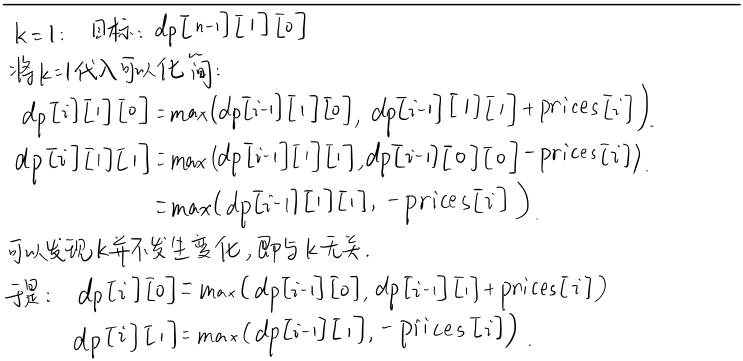 k=1: 目标: dp[n-1][1][0]
将k=1代入可以化简:
dp[i][1][0]=max(dp[i-1][1][0], dp[i-1][1][1]+prices[i]).
dp[i][1][1]=max(dp[i-1][1][1],dp[i-1][0][0]-prices[i]).
=max(dp[i-1][1][1], -prices[i]).
可以发现k并不发生变化,即与k无关.
于是: dp[i][0]=max(dp[i-1][0], dp[i-1][1]+prices[i])
dp[i][1]=max(dp[i-1][1], -prices[i]).